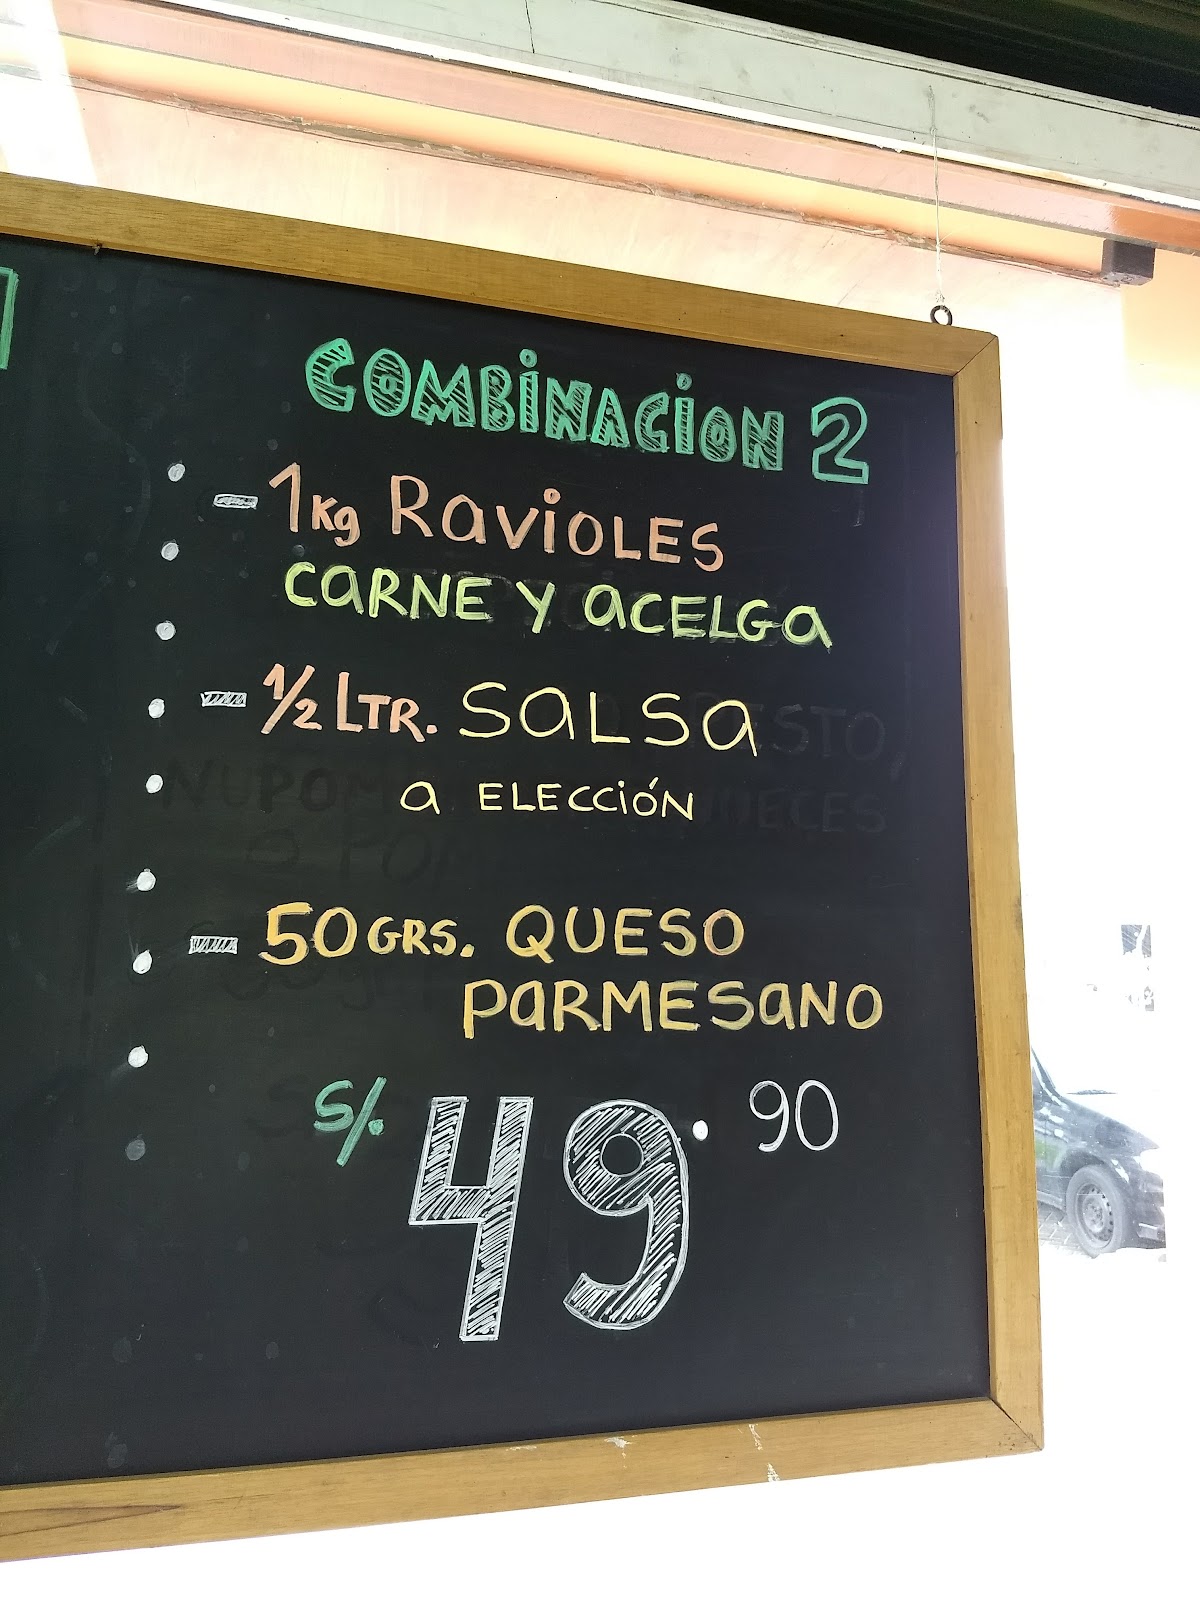 COMBINACION 2
- 1kg RAVIOLES
CARNE Y ACELGA
- 1/2 LTR. SALSA
a ELECCIÓN
- 50 GRS. QUESO
PARMESANO
S/. 49.90